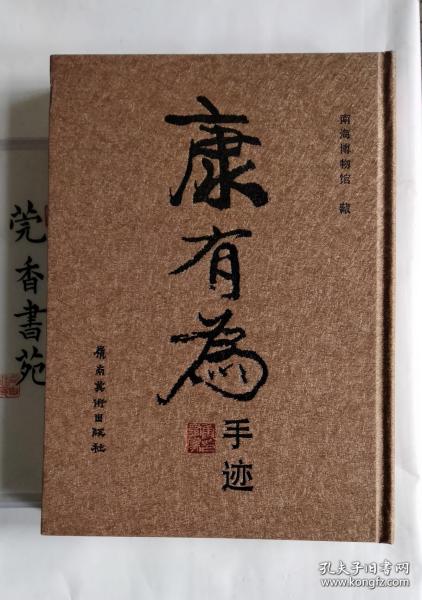 南海博物馆 藏
康有為
手迹
嶺南美術出版社
莞香書苑
孔夫子旧书网
www.kongfz.com